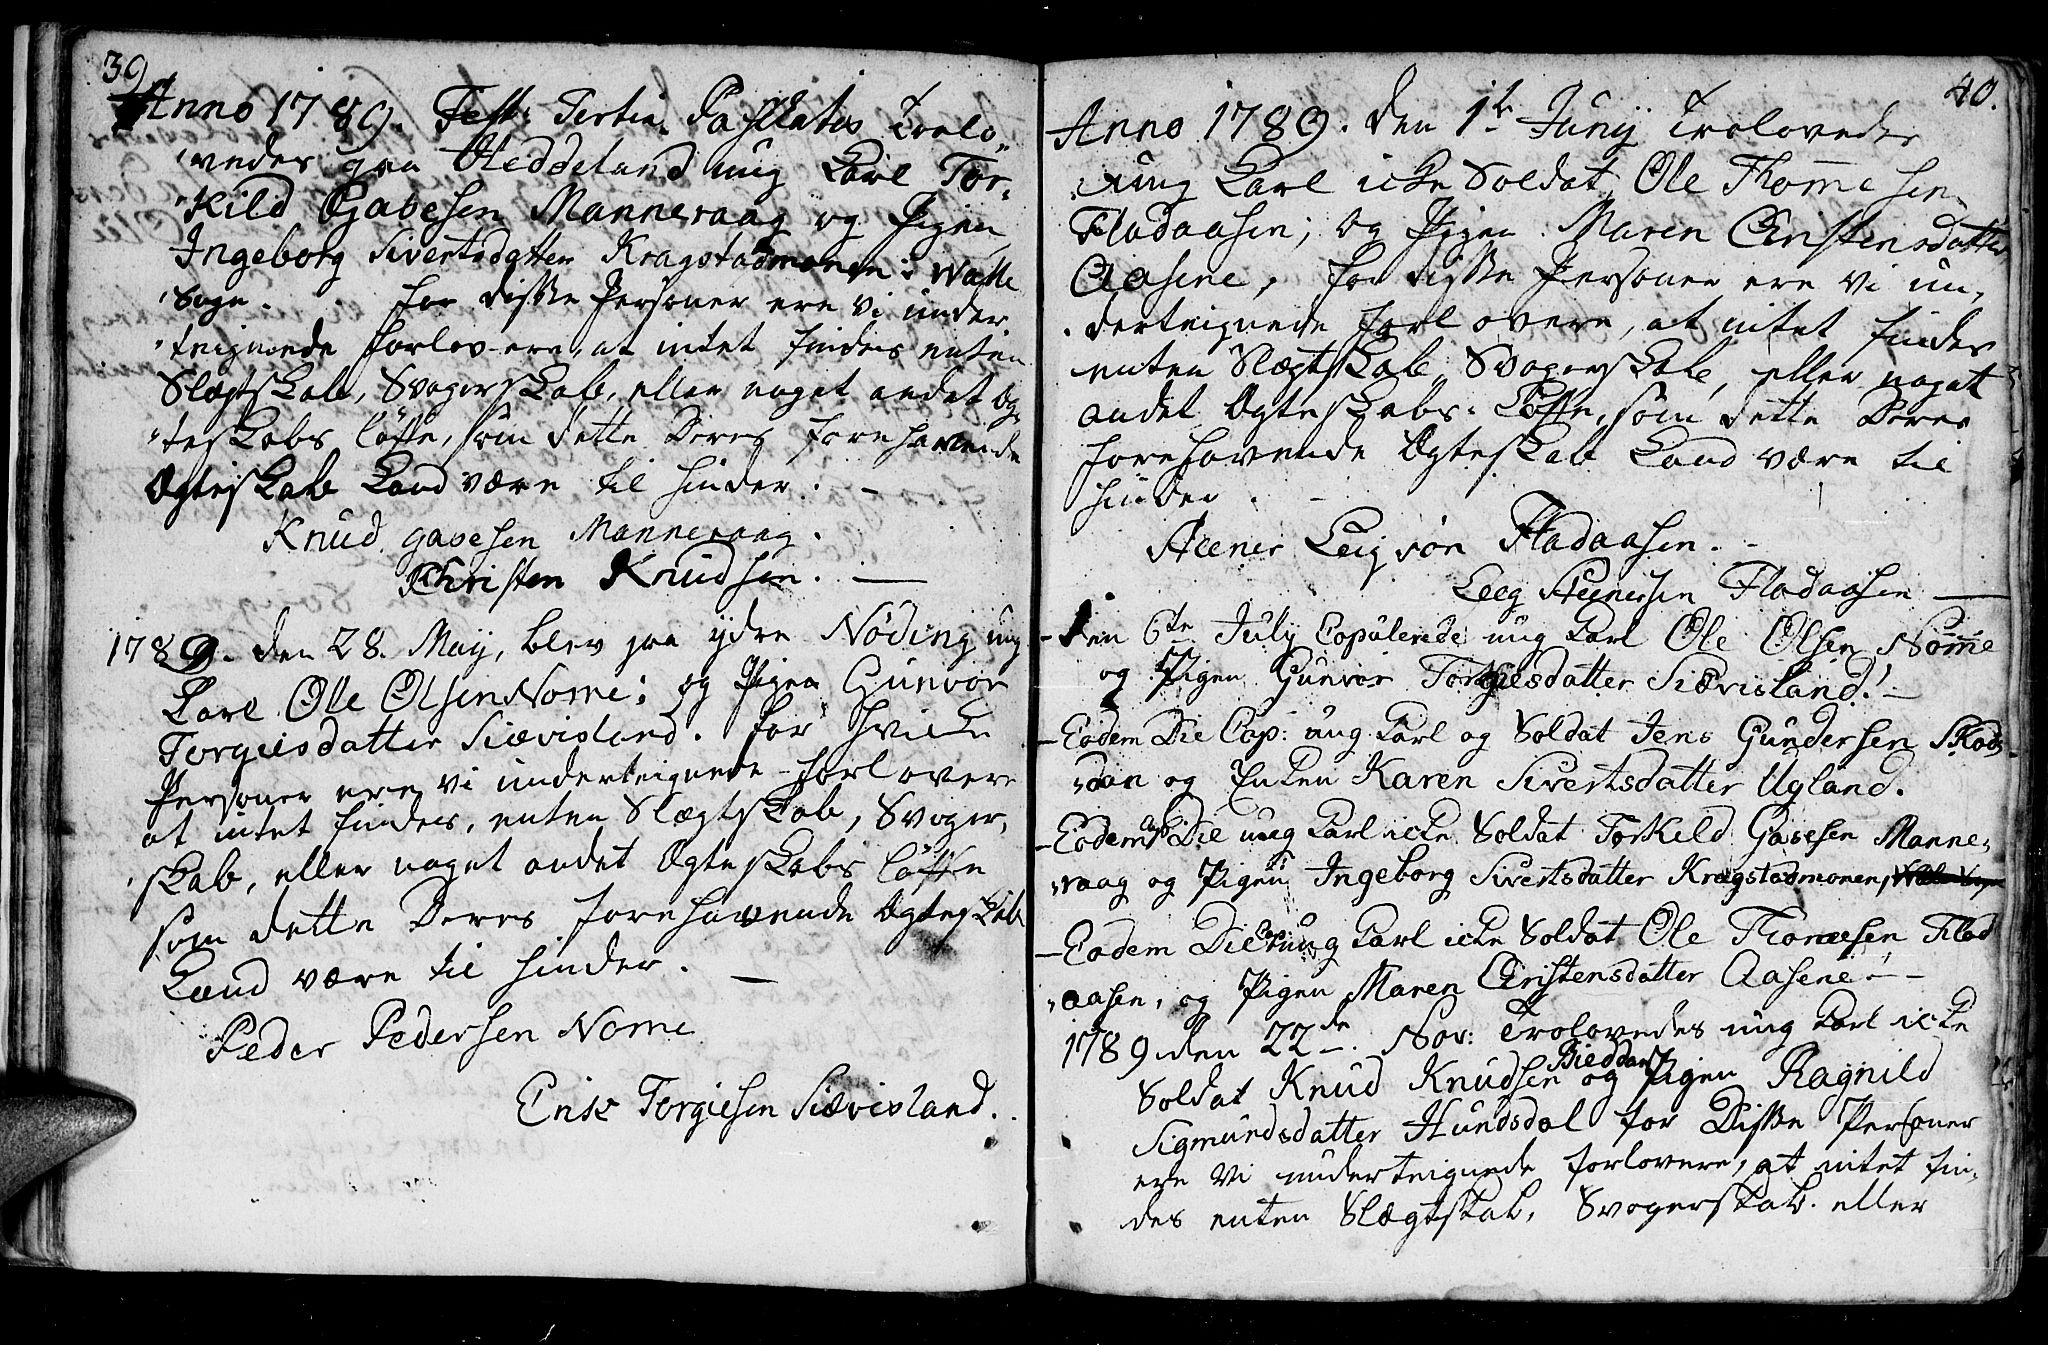 39
Anno 1789. Fest: Tertia Paschatos Trolo-
vedes paa Heddeland ung Karl Tor-
kild Gabesen Manneraag og Pigen
Ingeborg Sivertsdatter Kragstadmonen i Walle
Sogn. For disse Personer ere vi under-
teignede forlovere, at intet findes enten
Slægtskab, Svogerskab, eller noget andet Æg-
teskabs löfte, som dette Deres forehavende
Ægteskab kand være til hinder. -
Knud gabesen Manneraag.
Christen Knudsen. -
1789. den 28. Maij, blev paa ydre Nöding ung
Karl Ole Olsen Nome; og Pigen Gunvor
Torgiusdatter Siævisland. For hvilke
Personer ere vi underteignede forlovere
at intet findes, enten Slægtskab, Svoger-
skab, eller noget andet Ægteskabs löfte
som dette Deres forehavende Ægteskab
kand være til hinder. -
Peder Pedersen Nome
Erik Torgiesen Siævisland.
40.
Anno 1789. den 1te Junij Trolovedes
ung Karl icke Soldat, Ole Thommesen
Fladaasen; og Pigen Maren Christensdatter
Aasene, for disse Personer ere vi un-
derteignede forlovere, at intet findes
enten Slægtskab, Svogerskab, eller noget
andet Ægteskabs-Löfte, som dette Deres
forehavende Ægteskab kand være til
hinder. -
Steener Leigsön Fladaasen. -
Leeg Steenersen Fladaasen -
- Den 6te July Copulerede ung Karl Ole Olsen Nomme
og Pigen Gunvor Torgiesdatter Siævisland. -
- Eodem Die Cop: ung Karl og Soldat Jens Gundersen Skods-
dan og Enken Karen Sivertsdatter Ugland.
- Eodem Die Cop ung Karl icke Soldat Torkild Gabesen Manne-
raag og Pigen Ingeborg Sivertsdatter Kragstadmonen,
- Eodem Die Cop: ung Karl icke Soldat Ole Thomesen Flad
aasen, og Pigen Maren Christensdatter Aasene -
1789 den 22de Nov: Trolovedes ung Karl icke
Soldat Knud Knudsen Bieddan og Pigen Ragnild
Sigmundsdatter Hundsdal for Disse Personer
ere vi underteignede forlovere, at intet fin-
des enten Slægtskab, Svogerskab. eller